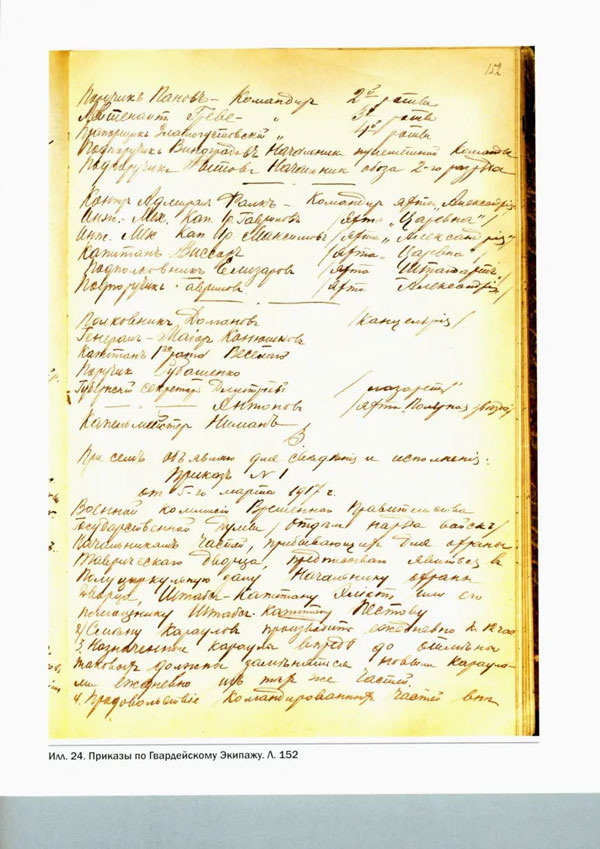 152
Поручикъ Пановъ — Командиръ 2й роты
Лейтенантъ Греве — " 3й роты
Прапорщикъ Златоустовскій " 4й роты
Подпоручикъ Виноградовъ Начальник пулеметной команды
Подпоручикъ Начальник обоза 2-го разряда
Контръ Адмиралъ Фалкъ — Командир яхты Александрія
Инж. Мех. Кап. Iр Гавриловъ /яхта „Царевна"/
Инж. Мех. Кап. Iр Максимовъ /яхта „Александрія"/
Капитанъ /яхта „Царевна"/
Подполковникъ Елизаровъ /яхта Штандартъ/
Подпоручикъ Гавриловъ /яхта Александрія/
Полковникъ Домановъ /канцелярія/
Генералъ-Маіоръ Конюшковъ
Капитанъ 1го ранга Веселаго
Поручик
Губернскій секретарь Дмитріевъ /лазаретъ/
— " — " — Антонов /яхта Полярная звѣзда/
Капельмейстеръ Ниманъ
3.
При семъ объявляю для свѣдѣнія и исполненія:
Приказъ № 1
от 5-го марта 1917 г.
Военной комиссіи Временнаго Правительства
Государственной Думы /отдѣлъ войскъ/
Начальникамъ частей, прибывающихъ для охраны
Таврическаго Дворца, предписываю явиться въ
Полуциркульную залу Начальнику охраны
Дворца, Штабсъ-Капитану или его
помощнику Штабсъ-Капитану Пестову
2/ Смѣну Карауловъ производить ежедневно въ 12 час
3. Назначенные караулы впредь до отмѣны
таковыхъ должны замѣняться новыми караула-
ми ежедневно изъ тѣхъ же частей.
4. Продовольствіе командированныхъ частей
Илл. 24. Приказы по Гвардейскому Экипажу. Л. 152